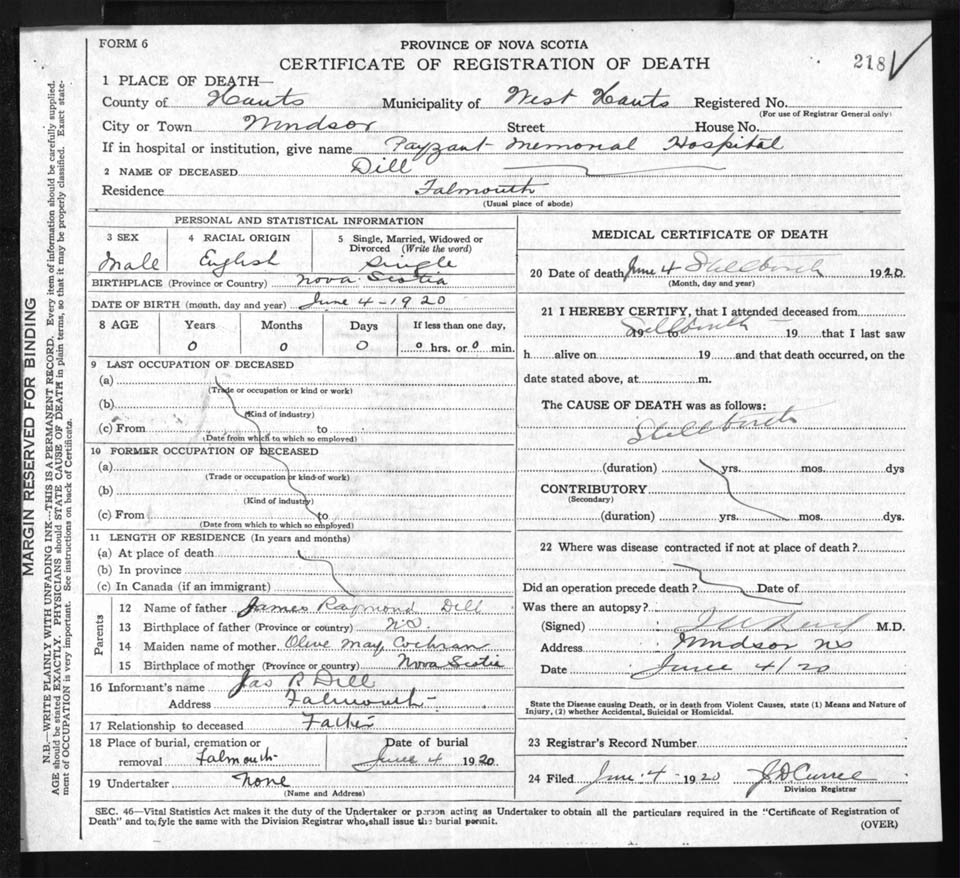 FORM 6
PROVINCE OF NOVA SCOTIA
CERTIFICATE OF REGISTRATION OF DEATH
218
1 PLACE OF DEATH—
County of Hants Municipality of West Hants Registered No.
(For use of Registrar General only)
City or Town Windsor Street House No.
If in hospital or institution, give name Payzant Memorial Hospital
2 NAME OF DECEASED Dill
Residence Falmouth
(Usual place of abode)
PERSONAL AND STATISTICAL INFORMATION
3 SEX 4 RACIAL ORIGIN 5 Single, Married, Widowed or Divorced (Write the word)
Male English Single
BIRTHPLACE (Province or Country) Nova Scotia
DATE OF BIRTH (month, day and year) June 4 - 1920
8 AGE Years Months Days If less than one day,
0 0 0 0 hrs. or 0 min.
9 LAST OCCUPATION OF DECEASED
(a)
(Trade or occupation or kind or work)
(b)
(Kind of industry)
(c) From to
(Date from which to which so employed)
10 FORMER OCCUPATION OF DECEASED
(a)
(Trade or occupation or kind of work)
(b)
(Kind of industry)
(c) From to
(Date from which to which so employed)
11 LENGTH OF RESIDENCE (In years and months)
(a) At place of death
(b) In province
(c) In Canada (if an immigrant)
Parents
12 Name of father James Raymond Dill
13 Birthplace of father (Province or country) N.S.
14 Maiden name of mother Olive May Cochran
15 Birthplace of mother (Province or country) Nova Scotia
16 Informant's name Jas R Dill
Address Falmouth
17 Relationship to deceased Father
18 Place of burial, cremation or removal Falmouth Date of burial June 4 1920
19 Undertaker None
(Name and Address)
MEDICAL CERTIFICATE OF DEATH
20 Date of death June 4 Stillbirth 1920
(Month, day and year)
21 I HEREBY CERTIFY, that I attended deceased from
Stillbirth 19 to 19 that I last saw
h alive on 19 and that death occurred, on the
date stated above, at m.
The CAUSE OF DEATH was as follows:
Stillbirth
(duration) yrs. mos. dys
CONTRIBUTORY
(Secondary)
(duration) yrs. mos. dys.
22 Where was disease contracted if not at place of death?
Did an operation precede death? Date of
Was there an autopsy?
(Signed) M.D.
Address Windsor NS
Date June 4/20
State the Disease causing Death, or in death from Violent Causes, state (1) Means and Nature of
Injury, (2) whether Accidental, Suicidal or Homicidal.
23 Registrar's Record Number
24 Filed June 4 - 1920 J D Curree
Division Registrar
SEC. 46—Vital Statistics Act makes it the duty of the Undertaker or person acting as Undertaker to obtain all the particulars required in the "Certificate of Registration of
Death" and to fyle the same with the Division Registrar who shall issue the burial permit.
(OVER)
MARGIN RESERVED FOR BINDING
N.B.—WRITE PLAINLY WITH UNFADING INK—THIS IS A PERMANENT RECORD. Every item of information should be carefully supplied.
AGE should be stated EXACTLY. PHYSICIANS should STATE CAUSE OF DEATH in plain terms, so that it may be properly classified. Exact state-
ment of OCCUPATION is very important. See instructions on back of Certificate.